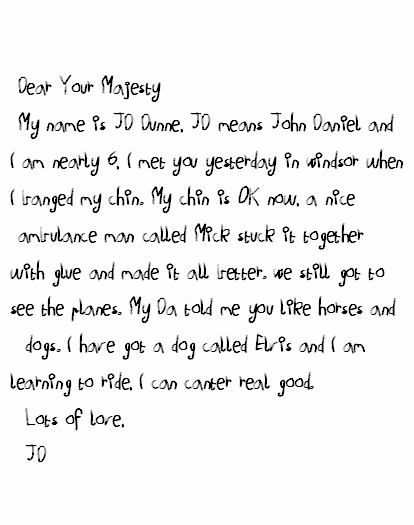 Dear Your Majesty
My name is JD Dunne. JD means John Daniel and
I am nearly 6. I met you yesterday in windsor when
I banged my chin. My chin is OK now. a nice
ambulance man called Mick stuck it together
with glue and made it all better. we still got to
see the planes. My Da told me you like horses and
dogs. I have got a dog called Elvis and I am
learning to ride. I can canter real good.
Lots of love.
JD